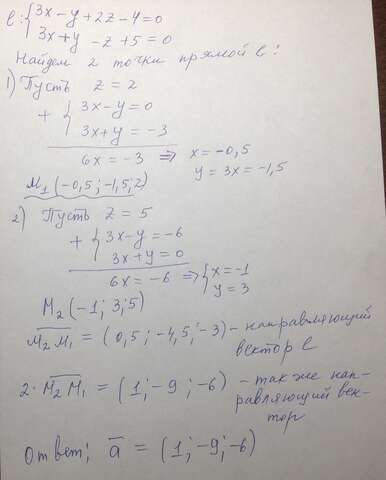 ℓ: { 3x - y + 2z - 4 = 0
3x + y - z + 5 = 0
Найдем 2 точки прямой ℓ:
1) Пусть z = 2
+ { 3x - y = 0
3x + y = -3
6x = -3 ⇒ x = -0,5
y = 3x = -1,5
M₁ (-0,5; -1,5; 2)
2) Пусть z = 5
+ { 3x - y = -6
3x + y = 0
6x = -6 ⇒ { x = -1
y = 3
M₂ (-1; 3; 5)
M₂M₁ = (0,5; -4,5; -3) - направляющий
вектор ℓ
2·M₂M₁ = (1; -9; -6) - так же нап-
равляющий век-
тор
Ответ: a = (1; -9; -6)